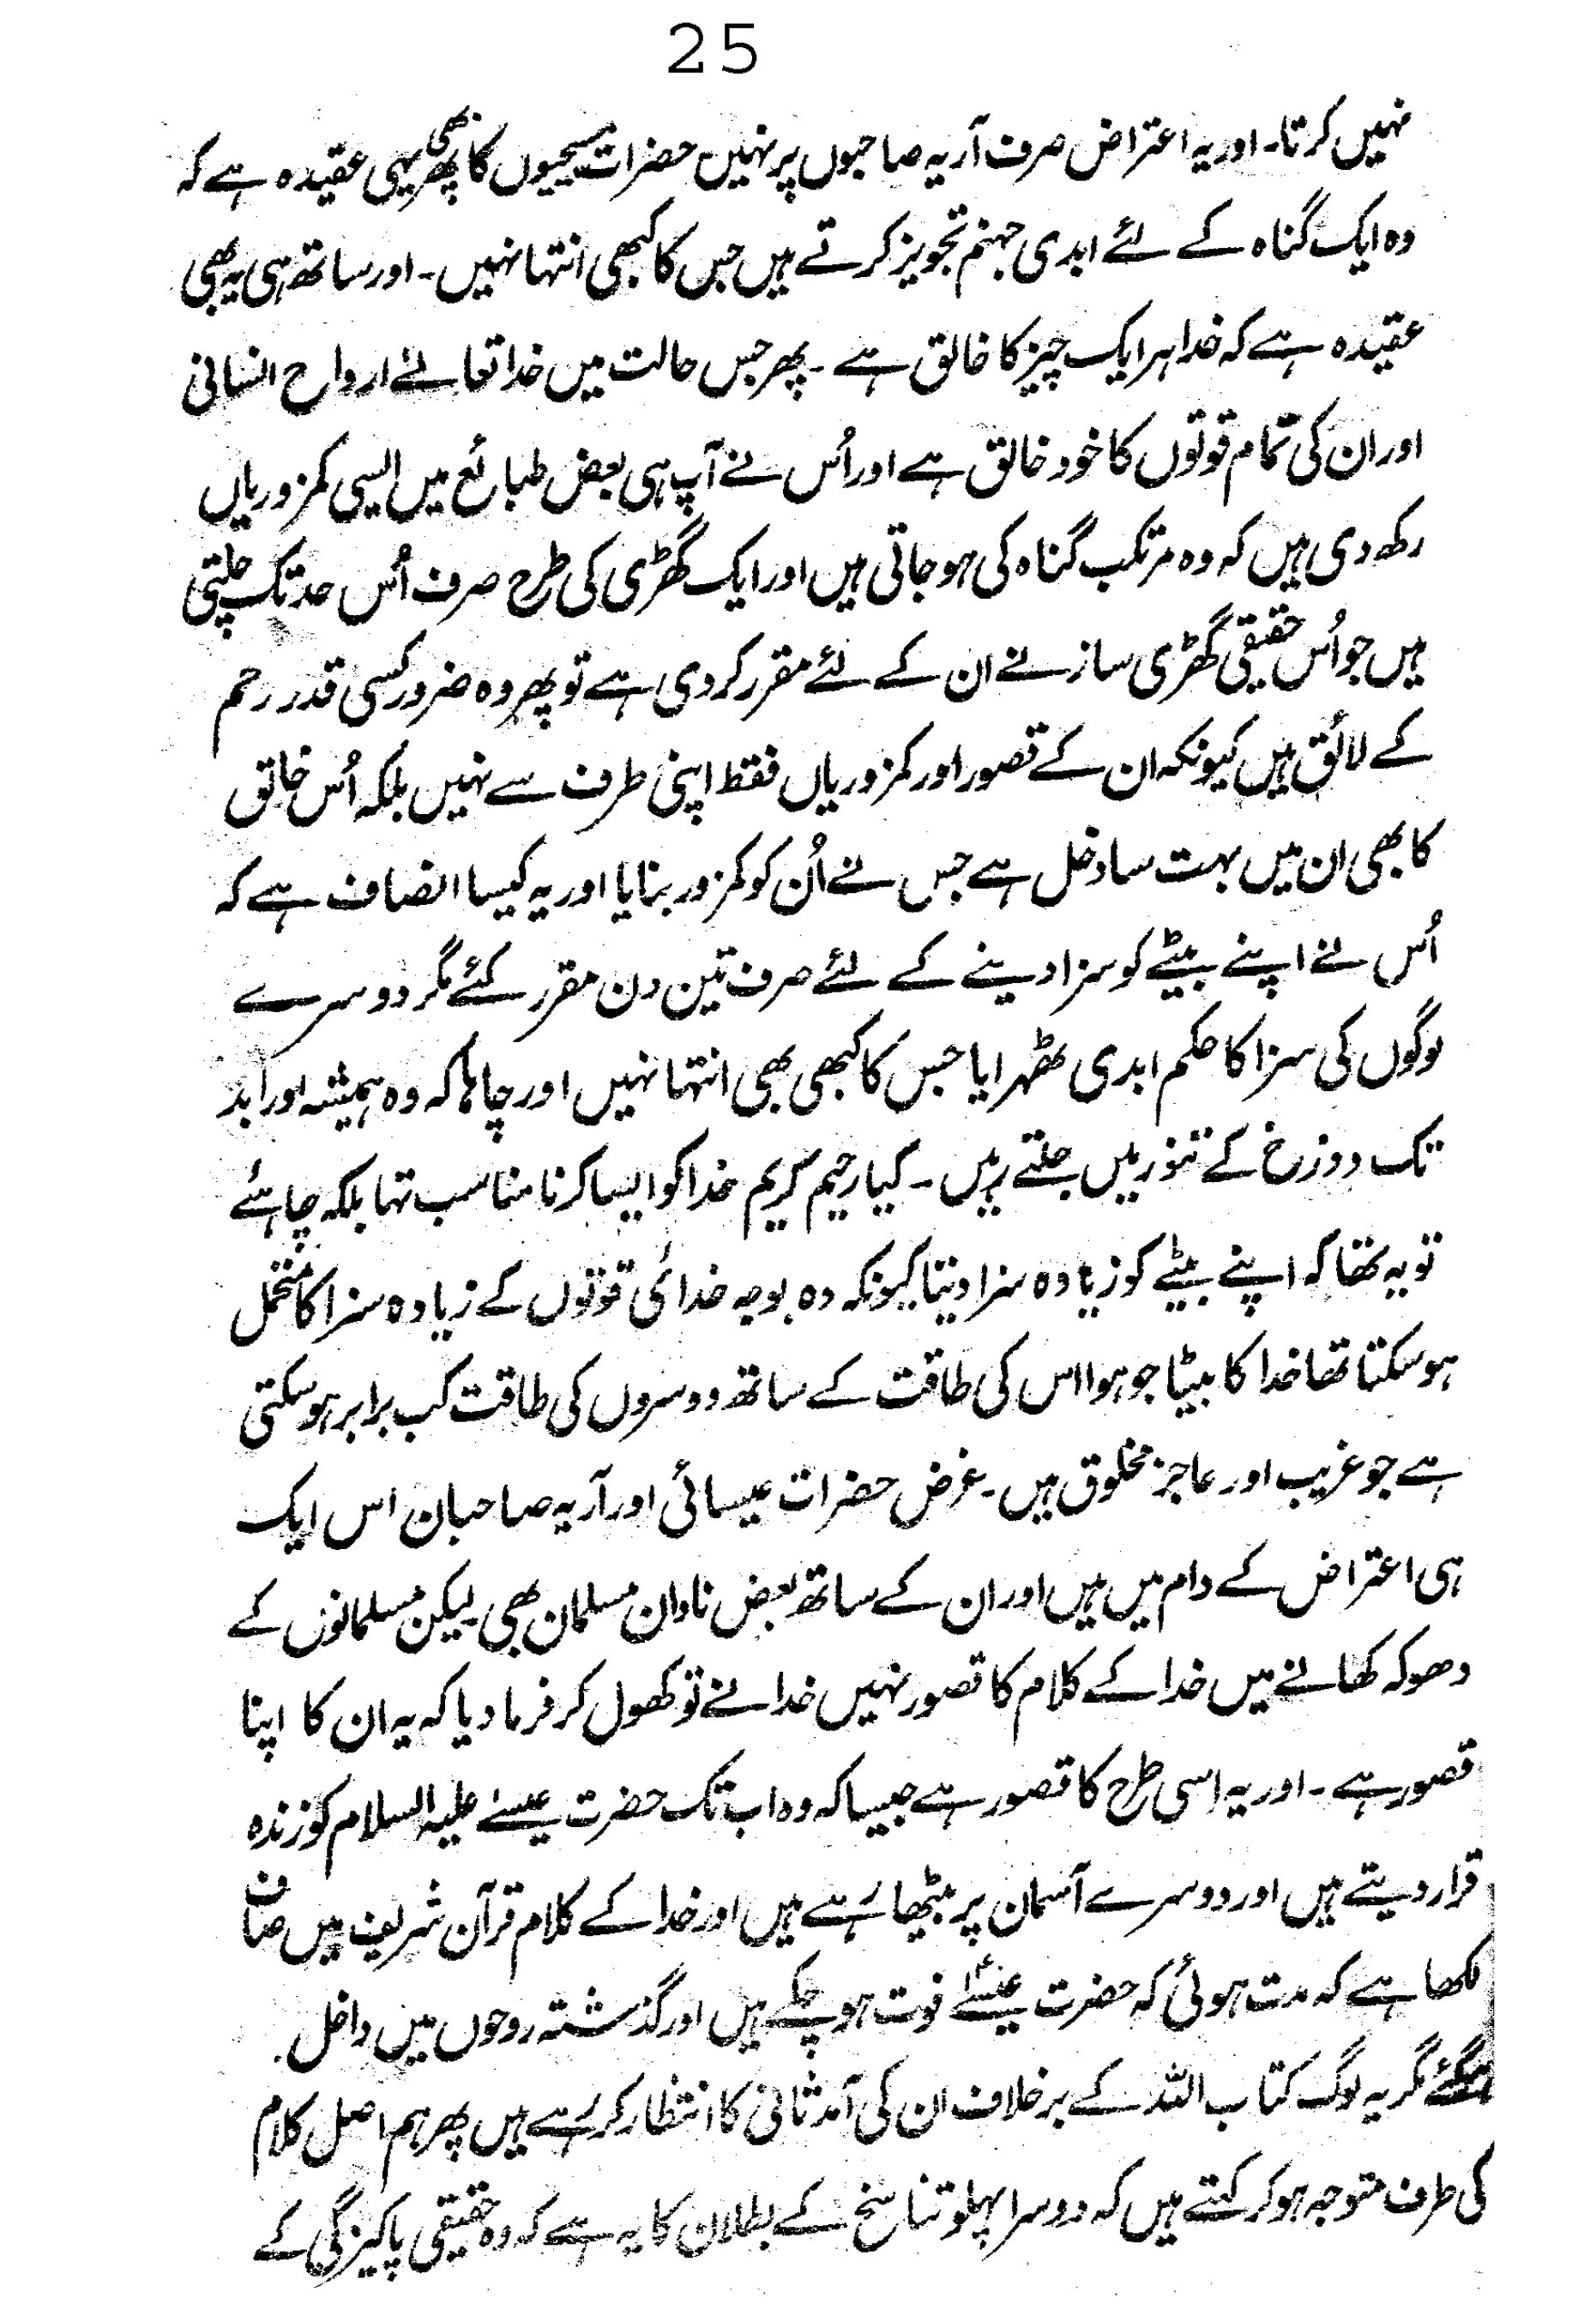 25
نہیں کرتا۔ اور یہ اعتراض صرف آریہ صاحبوں پر نہیں حضرات مسیحیوں کا بھی پھر یہی عقیدہ ہے کہ
وہ ایک گناہ کے لئے ابدی جہنم تجویز کرتے ہیں جس کا کبھی انتہا نہیں۔ اور ساتھ ہی یہ بھی
عقیدہ ہے کہ خدا ہر ایک چیز کا خالق ہے۔ پھر جس حالت میں خدا تعالےٰ ارواح انسانی
اور ان کی تمام قوتوں کا خود خالق ہے اور اُس نے آپ ہی بعض طبائع میں ایسی کمزوریاں
رکھ دی ہیں کہ وہ مرتکب گناہ کی ہو جاتی ہیں اور ایک گھڑی کی طرح صرف اُس حد تک چلتی
ہیں جو اُس حقیقی گھڑی ساز نے ان کے لئے مقرر کر دی ہے تو پھر وہ ضرور کسی قدر رحم
کے لائق ہیں کیونکہ ان کے قصور اور کمزوریاں فقط اپنی طرف سے نہیں بلکہ اُس خالق
کا بھی ان میں بہت سا دخل ہے جس نے اُن کو کمزور بنایا اور یہ کیسا انصاف ہے کہ
اُس نے اپنے بیٹے کو سزا دینے کے لئے صرف تین دن مقرر کئے مگر دوسرے
لوگوں کی سزا کا حکم ابدی ٹھہرایا جس کا کبھی بھی انتہا نہیں اور چاہا کہ وہ ہمیشہ اور ابد
تک دوزخ کے تنور میں جلتے رہیں۔ کیا رحیم کریم خدا کو ایسا کرنا مناسب تہا بلکہ چاہئے
تو یہ تھا کہ اپنے بیٹے کو زیادہ سزا دیتا کیونکہ وہ بوجہ خدائی قوتوں کے زیادہ سزا کا متحمل
ہو سکتا تھا خدا کا بیٹا جو ہوا اس کی طاقت کے ساتھ دوسروں کی طاقت کب برابر ہو سکتی
ہے جو غریب اور عاجز مخلوق ہیں۔ غرض حضرات عیسائی اور آریہ صاحبان اس ایک
ہی اعتراض کے دام میں ہیں اور ان کے ساتھ بعض نادان مسلمان بھی۔ لیکن مسلمانوں کے
دھوکہ کھانے میں خدا کے کلام کا قصور نہیں خدا نے تو کھول کر فرما دیا کہ یہ ان کا اپنا
قصور ہے۔ اور یہ اسی طرح کا قصور ہے جیسا کہ وہ اب تک حضرت عیسےٰ علیہ السلام کو زندہ
قرار دیتے ہیں اور دوسرے آسمان پر بیٹھا رہے ہیں اور خدا کے کلام قرآن شریف میں صاف
لکھا ہے کہ مدت ہوئی کہ حضرت عیسےٰؑ فوت ہو چکے ہیں اور گذشتہ روحوں میں داخل
ہو گئے مگر یہ لوگ کتاب اللہ کے برخلاف ان کی آمد ثانی کا انتظار کر رہے ہیں پھر ہم اصل کلام
کی طرف متوجہ ہو کر کہتے ہیں کہ دوسرا پہلو تناسخ کے بطلان کا یہ ہے کہ وہ حقیقی پاکیزگی کے